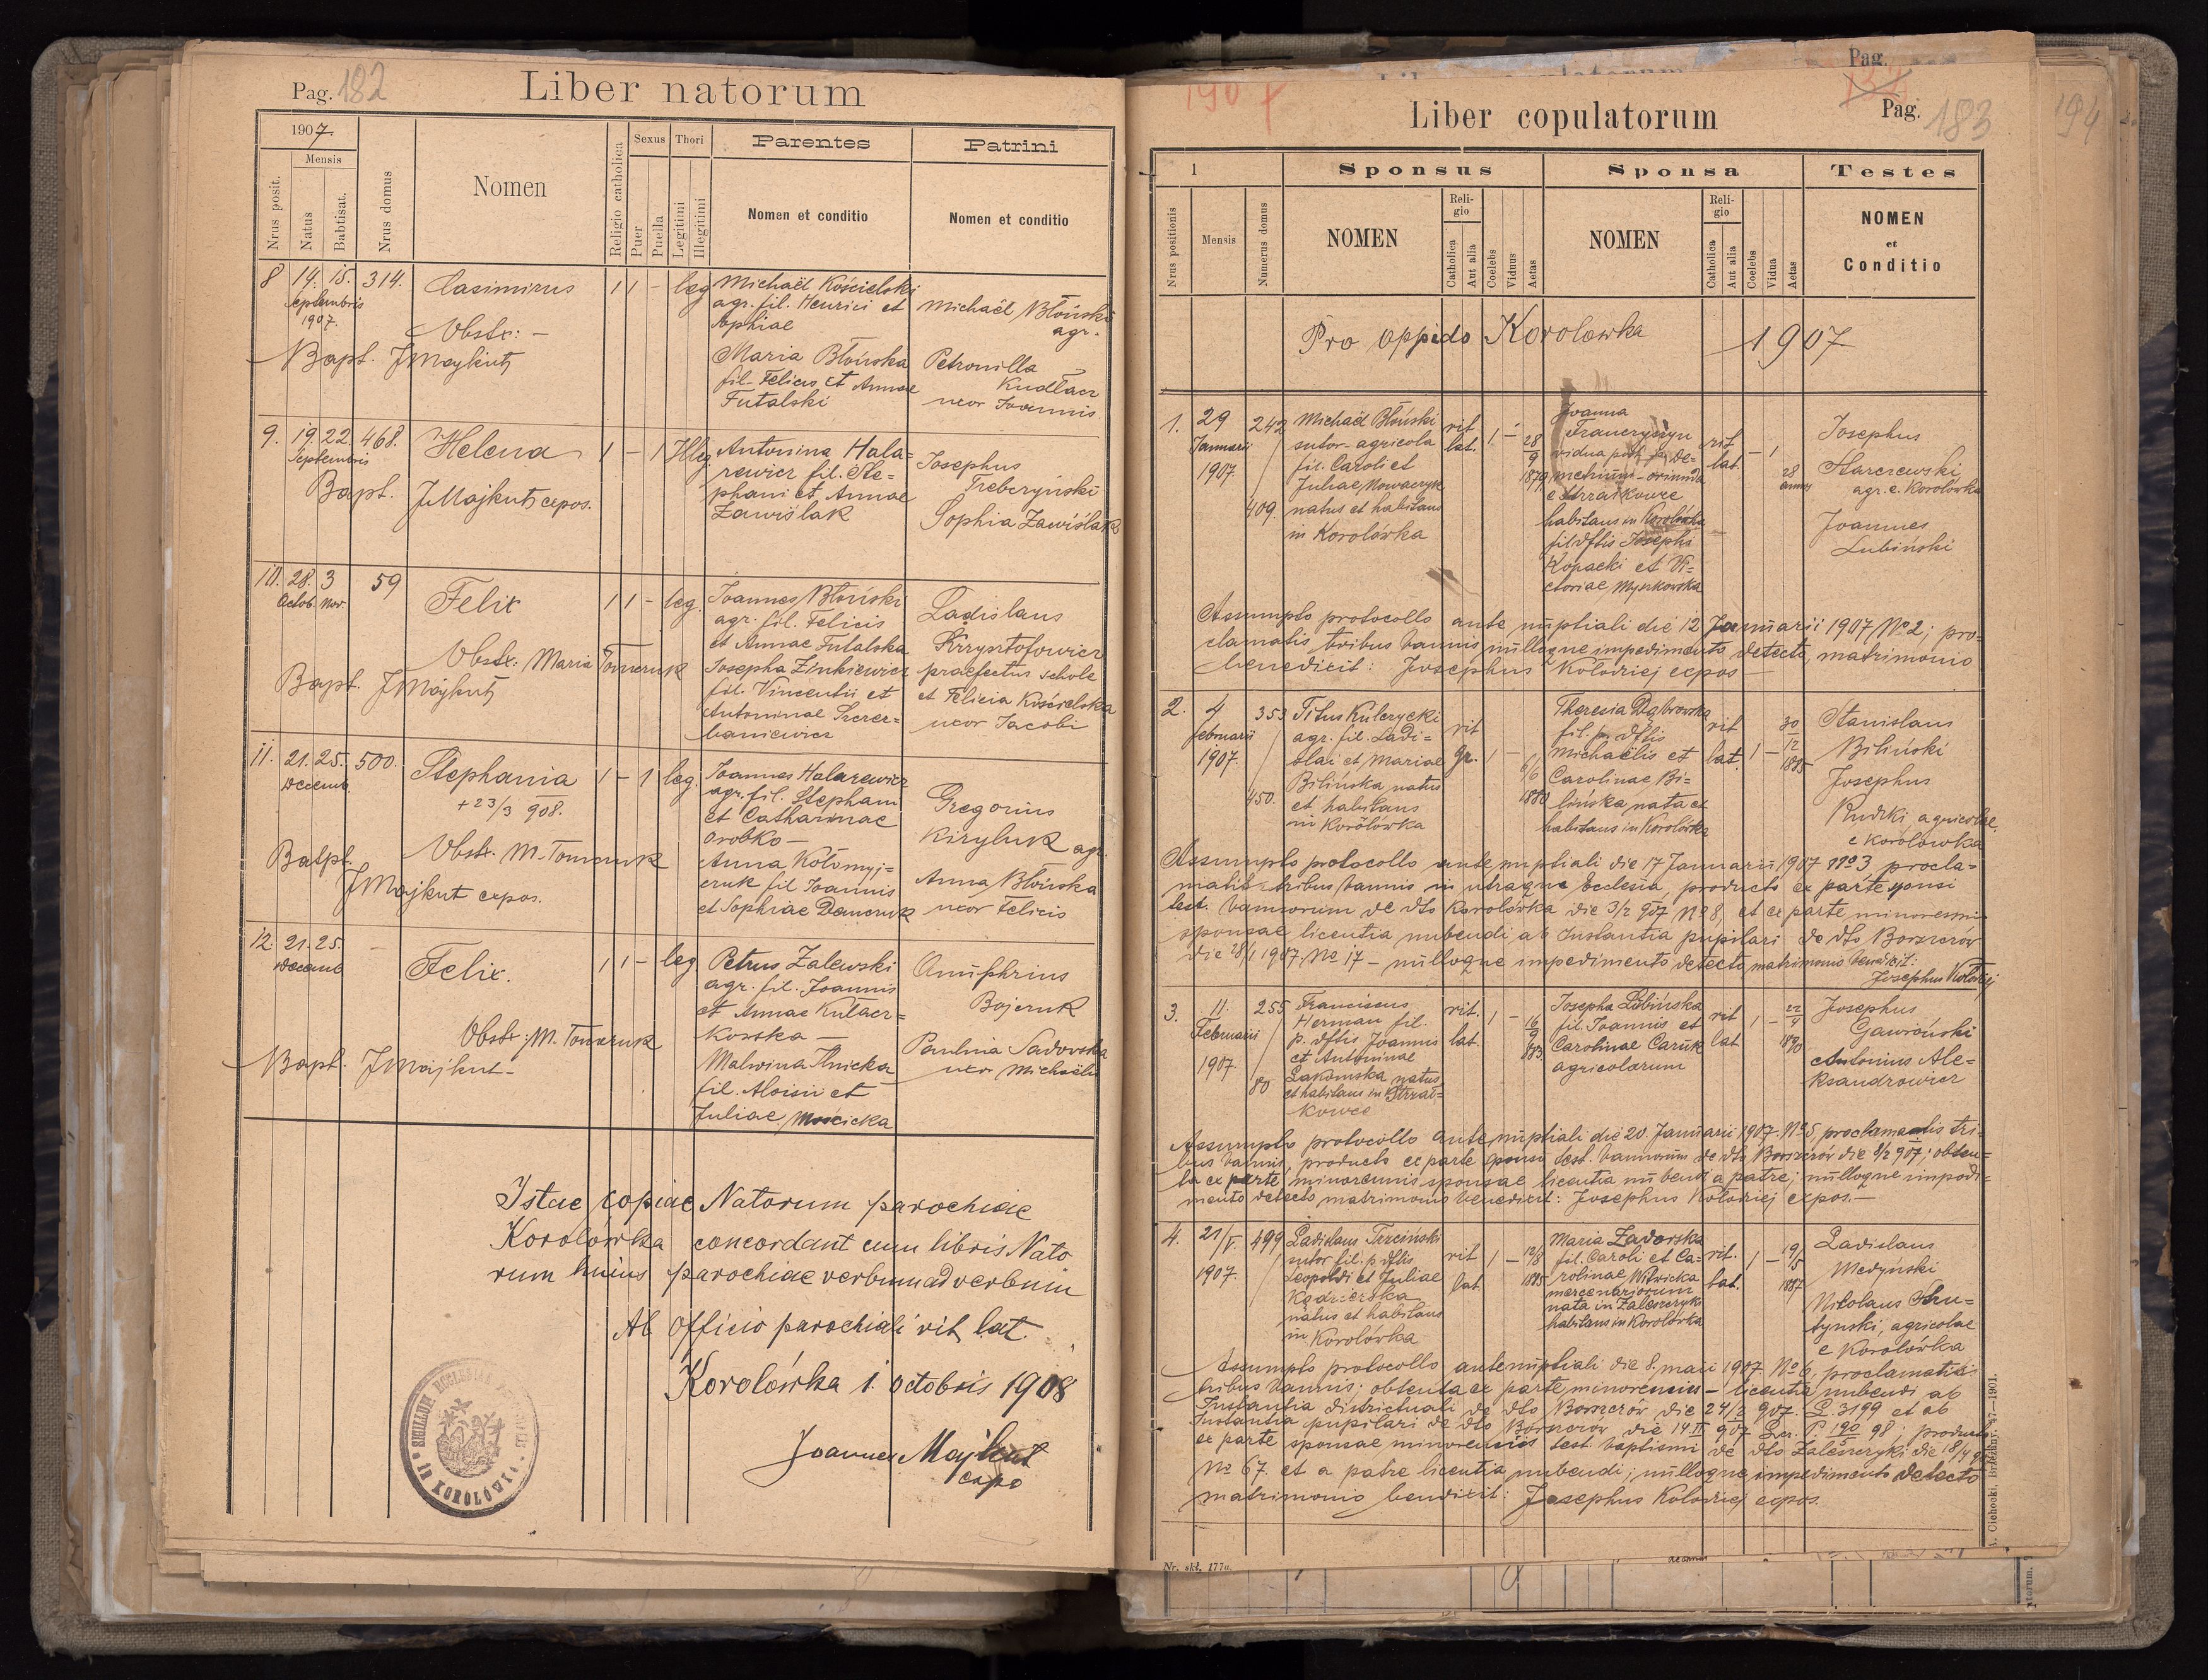 Pag. 182
Liber natorum
1907
Mensis
Nrus posit.
Natus
Babtisat.
Nrus domus
Nomen
Religio catholica
Sexus
Puer
Puella
Thori
Legitimi
Illegitimi
Parentes
Nomen et conditio
Patrini
Nomen et conditio
8 14. 15. 314. Casimirus 1 1 - leg
Septembris
1907.
Obstr: -
Bapt. JMajkut
Michaël Kościelski
agr. fil. Henrici et
Sophiae
Maria Błońska
fil. Felicis et Annae
Futalski
Michaël Błoński
agr.
Petronilla
Kudłacz
uxor Joannis
9. 19. 22. 468. Helena 1 - 1 Illeg.
Septembris
Bapt. JMajkut expos.
Antonina Hala=
rewicz fil. Ste=
phani et Annae
Zawiślak
Josephus
Trebczyński
Sophia Zawiślak
10. 28. 3 59 Felix 1 1 - leg.
Octob. Nov.
Obstr: Maria Tomczuk
Bapt. JMajkut
Joannes Błoński
agr. fil. Felicis
et Annae Futalska
Josepha Zinkiewicz
fil. Vincentii et
Antoninae Szczer=
baniewicz
Ladislaus
Krzysztofowicz
praefectus schole
et Felicia Kościelska
uxor Jacobi
11. 21. 25. 500. Stephania 1 - 1 leg.
Decemb.
+ 23/3 908.
Obstr. M. Tomczuk
Batpt.
JMajkut expos.
Joannes Halarewicz
agr. fil. Stephani
et Catharinae
Orobko -
Anna Kołomyj=
czuk fil Joannis
et Sophiae Demczuk
Gregorius
Kiryluk agr.
Anna Błońska
uxor Felicis
12. 21. 25. - Felix. 1 1 - leg
Decemb
Obstr: M. Tomczuk
Bapt. JMajkut -
Petrus Zalewski
agr. fil. Joannis
et Annae Kulacz=
kowska -
Malwina Ilnicka
fil. Aloisii et
Juliae Mościcka
Onuphrius
Bojczuk
Paulina Sadovska
uxor Michaëlis
Istae copiae Natorum parochiae
Korolówka concordant cum libris Nato
rum huius parochiae verbum ad verbum
Ab officio parochiali rit. lat.
Korolówka 1. Octobris 1908
Joannes Majkut
expo
SIGILLUM ECCLESIAE
in KOROLÓWKA
1907
Liber copulatorum
Pag.
Pag. 183
194
1
Nrus positionis
Mensis
Numerus domus
Sponsus
NOMEN
Religio
Catholica
Aut alia
Coelebs
Viduus
Aetas
Sponsa
NOMEN
Religio
Catholica
Aut alia
Coelebs
Vidua
Aetas
Testes
NOMEN
et
Conditio
Pro oppido Korolowka 1907
1. 29
Januarii
1907.
242
409.
Michaël Błoński
sutor - agricola
fil. Caroli et
Juliae Nowaczyk
natus et habitans
in Korolówka
rit
lat. 1. -
28
9
1879
Joanna
Franczyszyn
vidua post De=
metrium - oriunda
e Strzałkowce
habitans in Korolówka
fil. dftis Josephi
Kopacki et Vi=
ctoriae Mynkowska
rit
lat. - 1
28
annos
Josephus
Starczewski
agr. e. Korolówka
Joannes
Lubiński
Assumpto protocollo ante nuptiali die 12 Januarii 1907 No 2; pro=
clamatis tribus bannis nulloque impedimento detecto, matrimonio
benedixit: Josephus Kołodziej expos -
2. 4
Februarii
1907.
353
450.
Titus Kulczycki
agr. fil. Ladi=
slai et Mariae
Bilińska natus
et habitans
in Korolówka
rit
gr. 1 -
6/6
1880
Theresia Dąbrowska
fil. p. dftis
Michaëlis et
Carolinae Bi=
lińska nata et
habitans in Korolówka
rit
lat. 1 -
30
12
1885
Stanislaus
Biliński
Josephus
Rudzki agricolae
e Korolówka
Assumpto protocollo ante nuptiali die 17 Januarii 1907 No 3 procla=
matis tribus bannis in utraque Ecclesia, producto ex parte sponsi
test. bannorum de dto Korolówka die 3/2 907 No 8, et ex parte minorennis
sponsae licentia nubendi ab Instantia pupilari de dto Borszczów
die 28/1 1907, No 17 - nulloque impedimento detecto matrimonio benedixit:
Josephus Kołodziej
3. 11.
Februarii
1907.
255
80
Franciscus
Herman fil.
p. dftis Joannis
et Antoninae
Lakomska natus
et habitans in Strzał=
kowce
rit.
lat 1 -
16
9
883
Josepha Lubińska
fil. Joannis et
Carolinae Caruk
agricolarum
rit
lat 1 -
22
4
1890
Josephus
Gawroński
Antonius Ale=
ksandrowicz
Assumpto protocollo ante nuptiali die 20. Januarii 1907. No 5, proclamatis tri=
bus bannis, producto ex parte sponsi test. bannorum de dto Borszczów die 9/2 907; obten=
ta ex parte minorennis sponsae licentia nubendi a patre; nulloque impedi=
mento detecto matrimonio benedixit: Josephus Kołodziej expos. -
4. 21/V.
1907.
499
Ladislaus Trzciński
sutor fil. p dftis
Leopoldi et Juliae
Kędzierska
natus et habitans
in Korolówka
rit
lat 1 -
12/8
1885
Maria Zadorska
fil. Caroli et Ca=
rolinae Witwicka
mercenariorum
nata in Zaleszczyki
habitans in Korolówka
rit.
lat. 1 -
19/5
1887
Ladislaus
Medyński
Nikolaus Stru=
tynski, agricolae
e Korolówka
Assumpto protocollo antenuptiali die 8. maii 1907 No 6, proclamatis
tribus bannis; obtenta ex parte minorennis - licentia nubendi ab
Instantia districtuali de dto Borszczów die 24/2 907. L. 3199 et ab
Instantia pupilari de dto Borszczów die 14 II 907 98; producto
ex parte sponsae minorennis test. baptismi de dto Zaleszczyki die 18/4 907
No 67. et a patre licentia nubendi; nulloque impedimento detecto
matrimonio bendixit: Josephus Kołodziej expos.
Nr. skł. 177a.